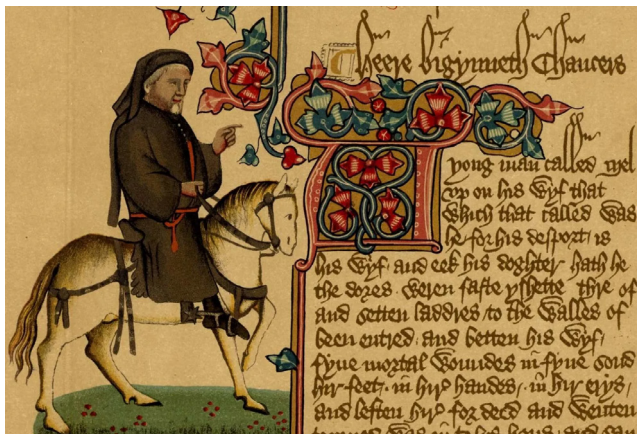 heere bigynneth Chaucers
yong man called Mel
vp on his wyf that
which that called was
he for his desport is
his wyf and eek his doghter hath he
the dores weren faste yshette thre of
and setten laddres to the walles of
been entred and betten his wyf
fyue mortal woundes in fyue sond
hir feet in hir handes in hir erys
and leften hir for deed and wenten